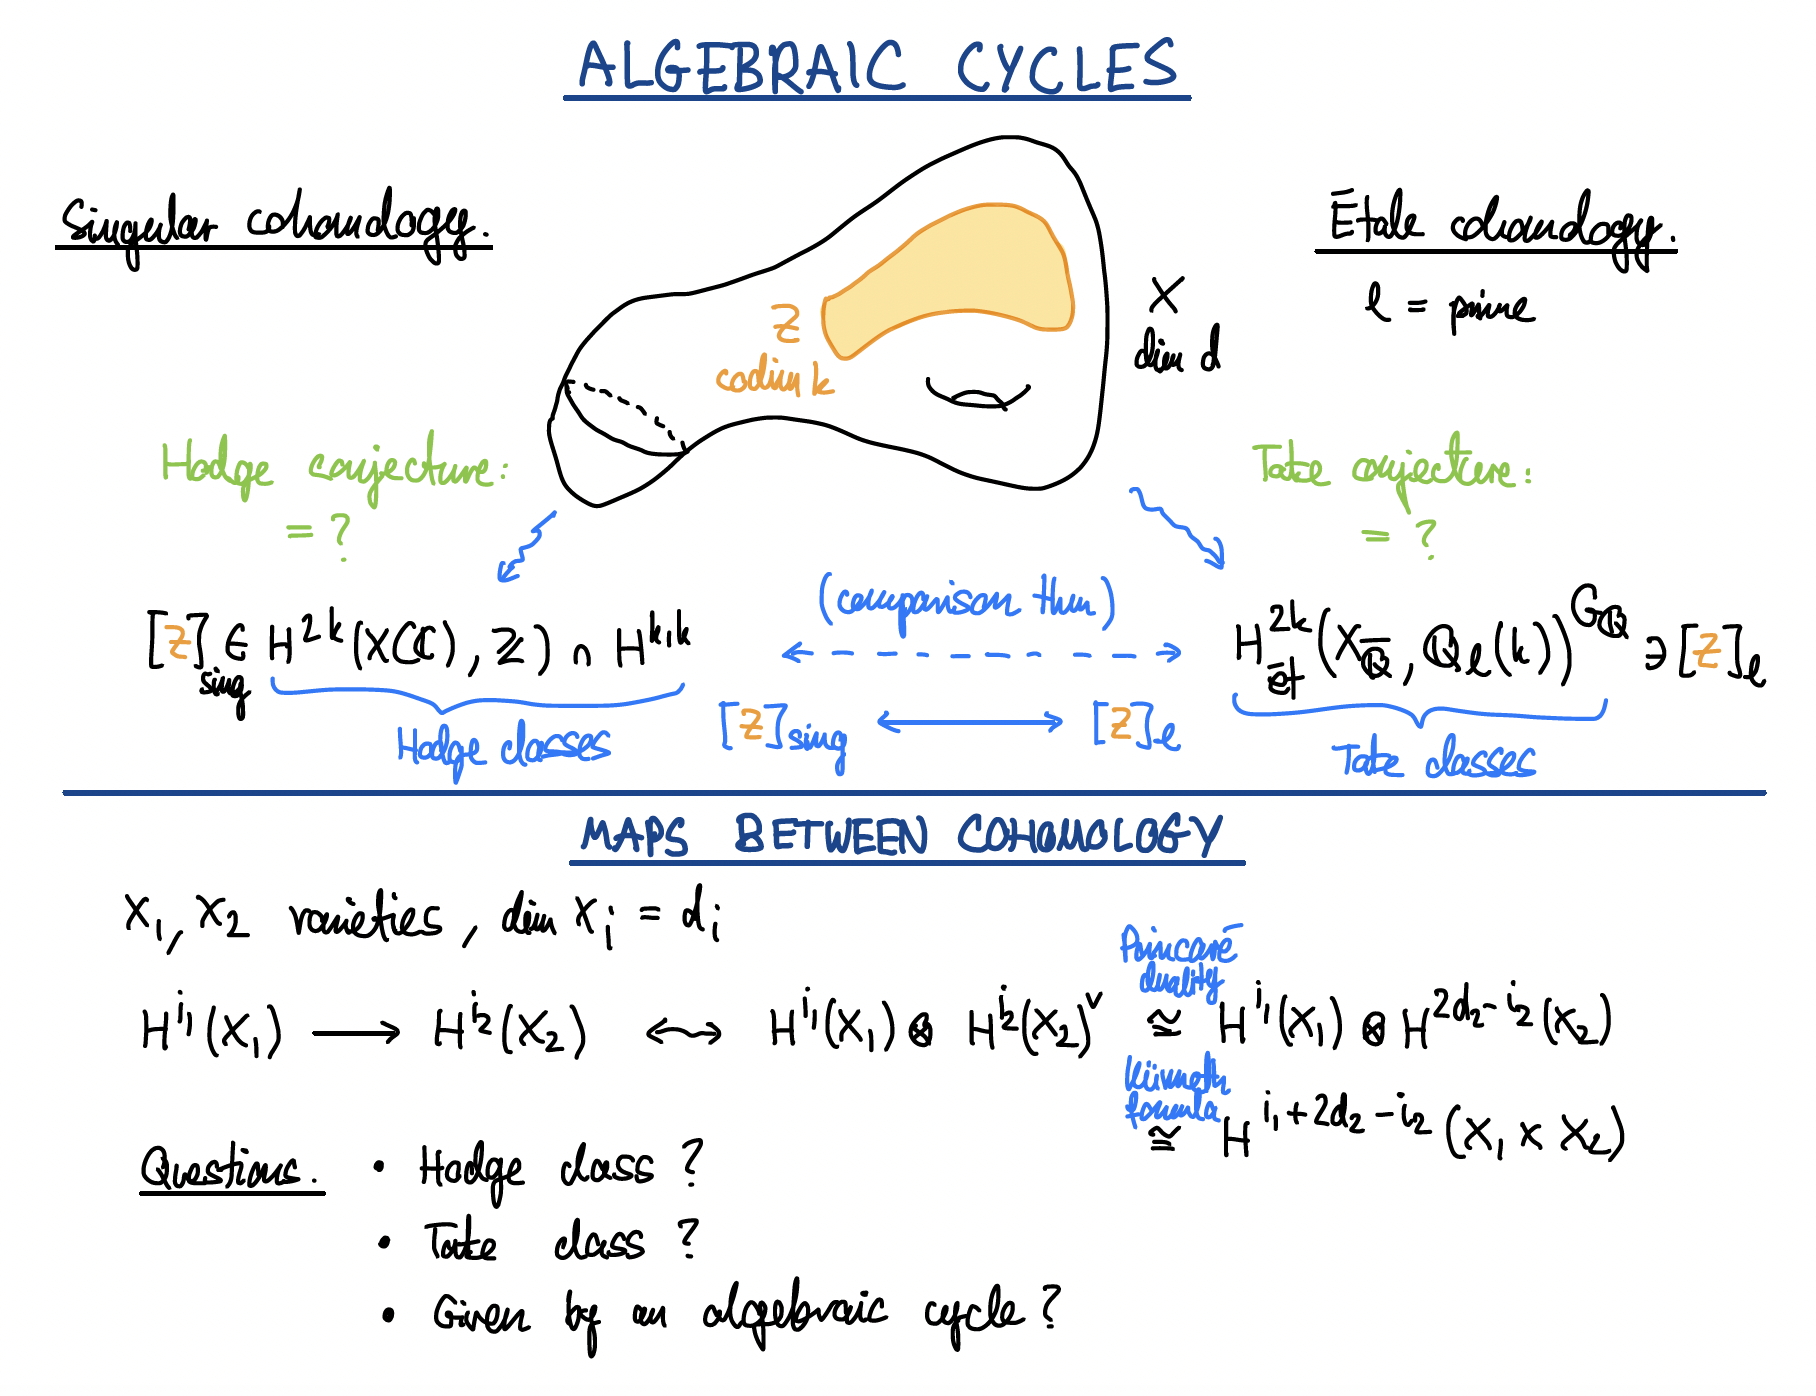 ALGEBRAIC CYCLES
Singular cohomology.
Étale cohomology.
ℓ = prime
X
dim d
Z
codim k
Hodge conjecture:
= ?
Tate conjecture:
= ?
[Z]_sing ∈ H^{2k}(X(ℂ), ℤ) ∩ H^{k,k}
Hodge classes
(comparison thm)
[Z]_sing ⟷ [Z]_ℓ
H^{2k}_{ét}(X_{\overline{ℚ}}, ℚ_ℓ(k))^{G_ℚ} ∋ [Z]_ℓ
Tate classes
MAPS BETWEEN COHOMOLOGY
X₁, X₂ varieties, dim X_i = d_i
H^{i₁}(X₁) ⟶ H^{i₂}(X₂) ⟷ H^{i₁}(X₁) ⊗ H^{i₂}(X₂)^∨ ≅ H^{i₁}(X₁) ⊗ H^{2d₂-i₂}(X₂)
Poincaré
duality
Künneth
formula
≅ H^{i₁+2d₂-i₂}(X₁ × X₂)
Questions.
• Hodge class ?
• Tate class ?
• Given by an algebraic cycle ?